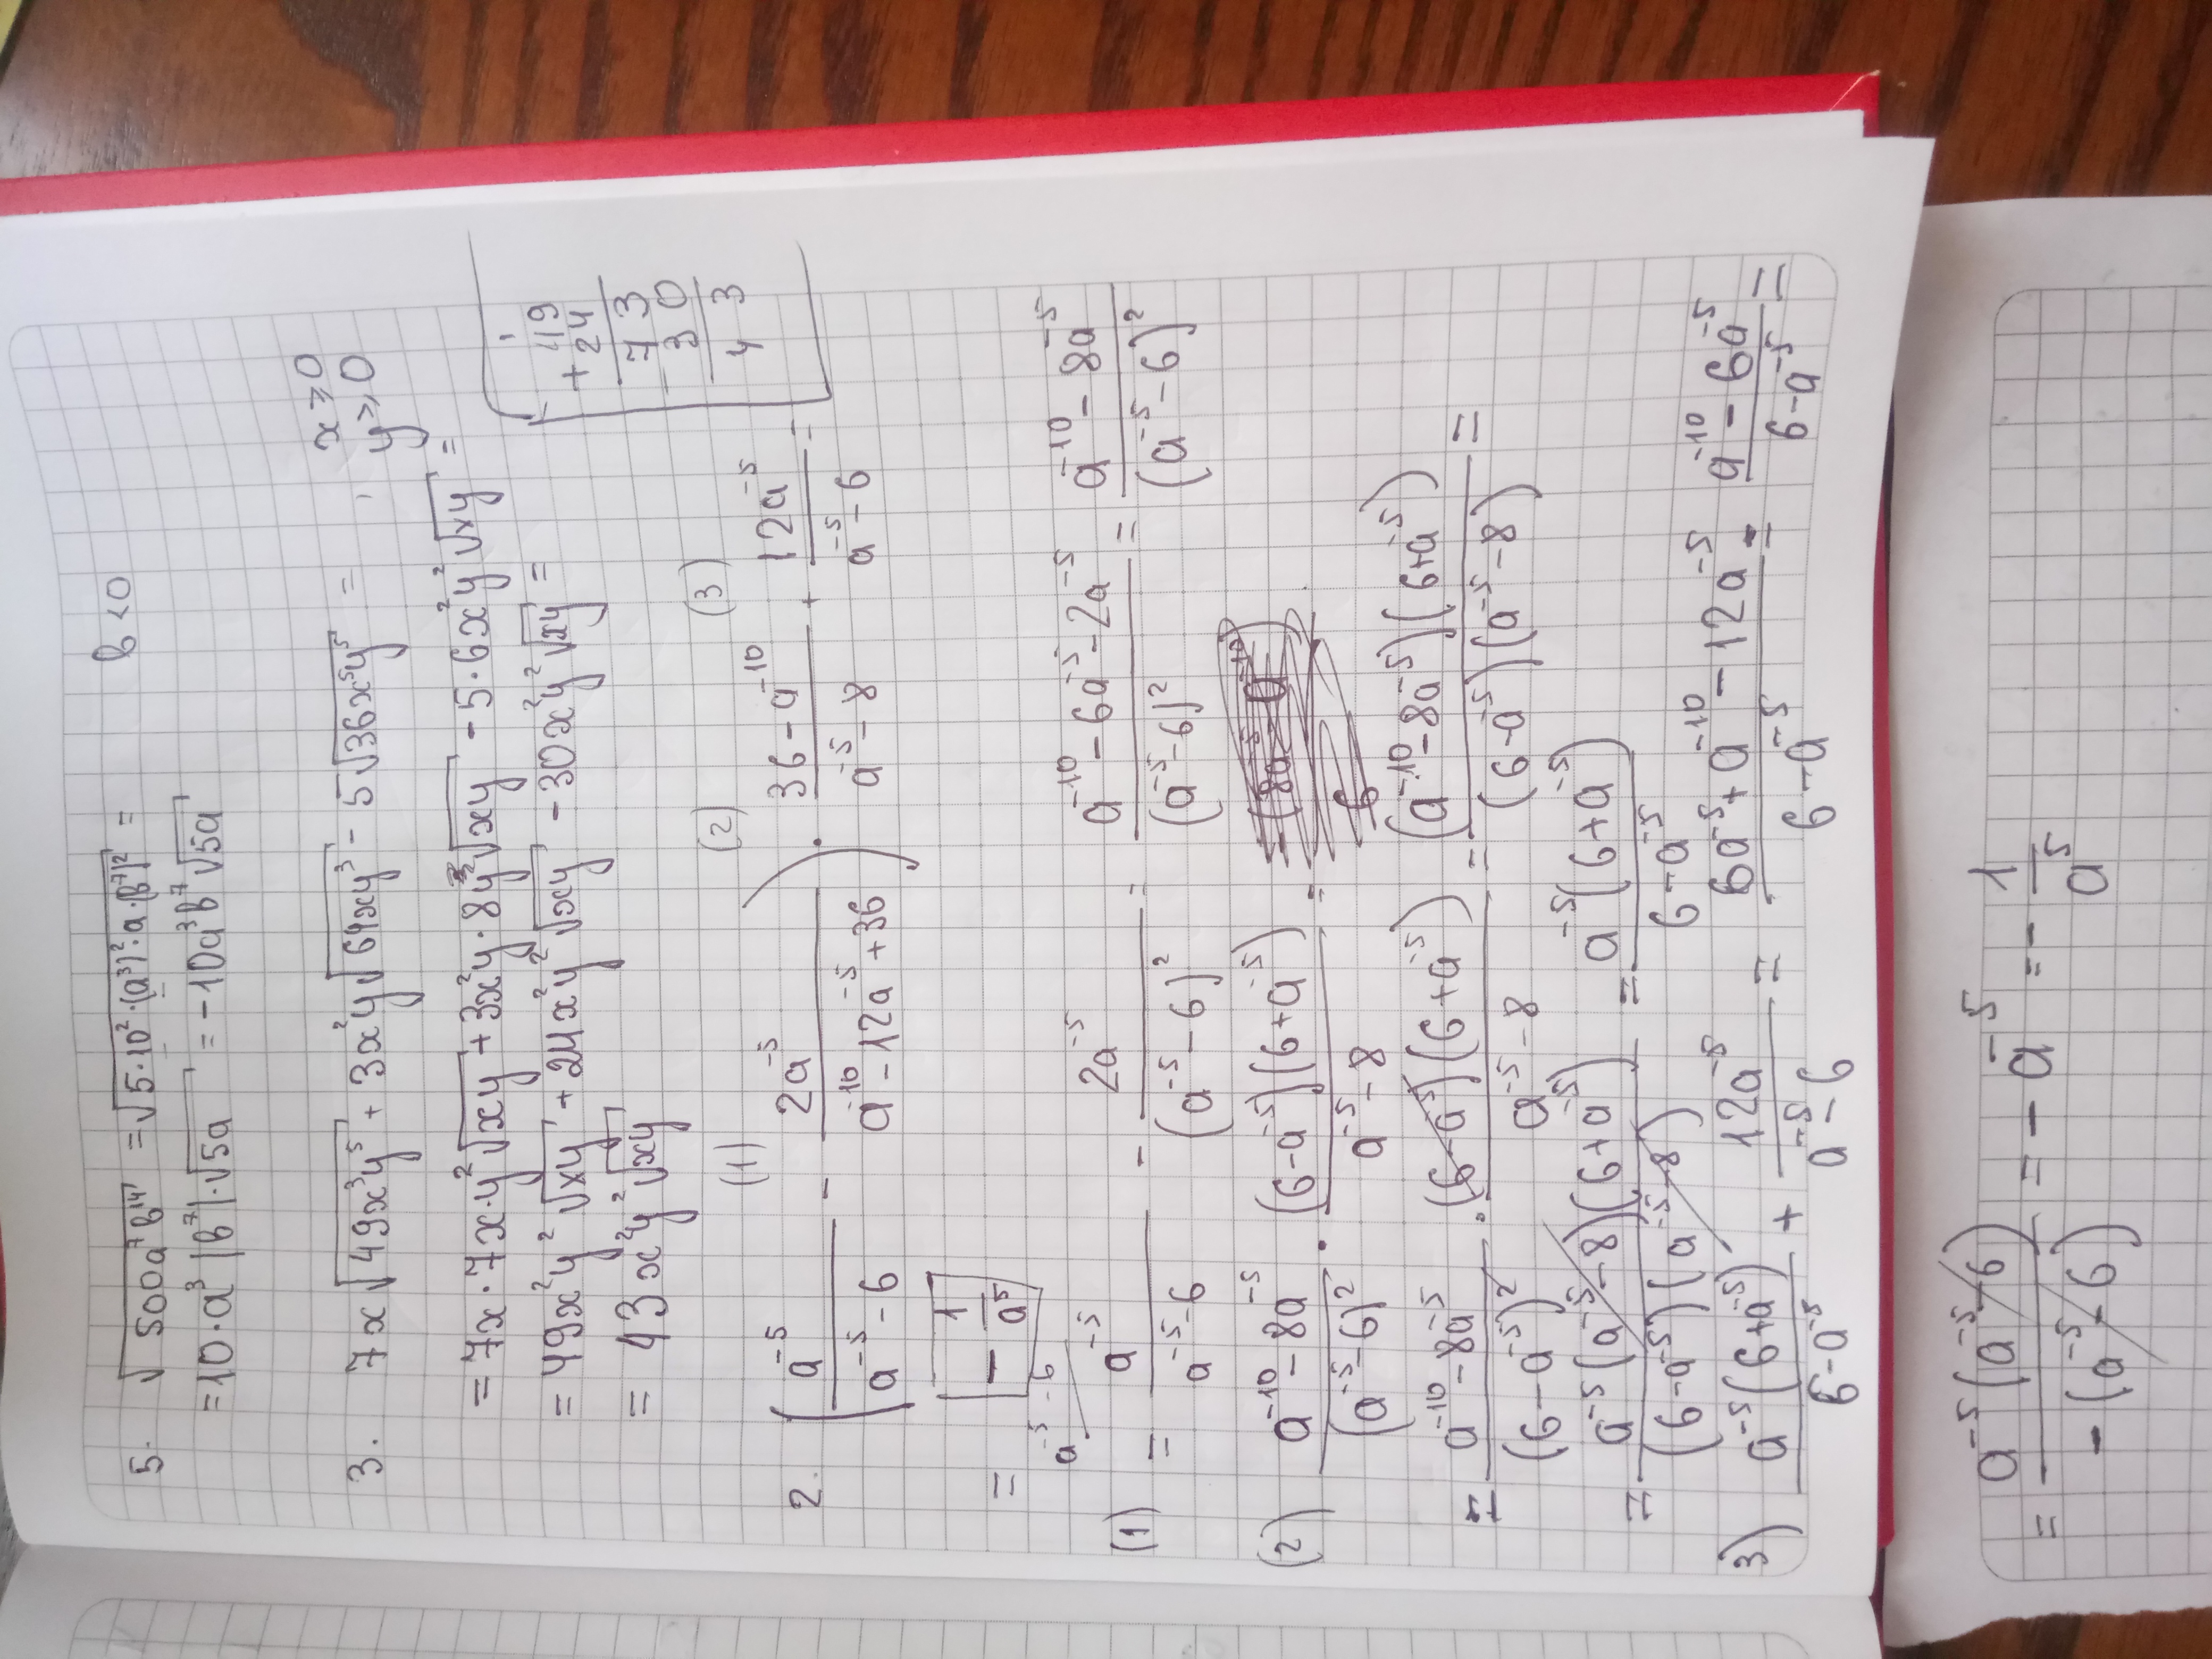 5. √500a⁷b¹⁴ = √5·10²·(a³)²·a·(b⁷)² =      b < 0
= 10·a³|b⁷|·√5a = -10a³b⁷√5a
x ≥ 0
y ≥ 0
3. 7x√49x³y⁵ + 3x²y√64xy³ - 5√36x⁵y⁵ =
= 7x·7x·y²√xy + 3x²y·8y√xy - 5·6x²y²√xy =
= 49x²y²√xy + 24x²y²√xy - 30x²y²√xy =
= 43x²y²√xy
1
+ 49
24
73
- 30
43
(1) (2) (3)
2. (a⁻⁵/(a⁻⁵-6) - 2a⁻⁵/(a⁻¹⁰-12a⁻⁵+36)) · (36-a⁻¹⁰)/(a⁻⁵-8) + 12a⁻⁵/(a⁻⁵-6) =
= -1/a⁵
a⁻⁵-6
a⁻⁵
(1) = a⁻⁵/(a⁻⁵-6) - 2a⁻⁵/(a⁻⁵-6)² = (a⁻¹⁰-6a⁻⁵-2a⁻⁵)/(a⁻⁵-6)² = (a⁻¹⁰-8a⁻⁵)/(a⁻⁵-6)²
(2) (a⁻¹⁰-8a⁻⁵)/(a⁻⁵-6)² · (6-a⁻⁵)(6+a⁻⁵)/(a⁻⁵-8) =
= (a⁻¹⁰-8a⁻⁵)/(6-a⁻⁵)² · (6-a⁻⁵)(6+a⁻⁵)/(a⁻⁵-8) = (a⁻¹⁰-8a⁻⁵)(6+a⁻⁵)/((6-a⁻⁵)(a⁻⁵-8)) =
= a⁻⁵(a⁻⁵-8)(6+a⁻⁵)/((6-a⁻⁵)(a⁻⁵-8)) = a⁻⁵(6+a⁻⁵)/(6-a⁻⁵)
3) a⁻⁵(6+a⁻⁵)/(6-a⁻⁵) + 12a⁻⁸/(a⁻⁵-6) = (6a⁻⁵+a⁻¹⁰-12a⁻⁵)/(6-a⁻⁵) = (a⁻¹⁰-6a⁻⁵)/(6-a⁻⁵) =
= a⁻⁵(a⁻⁵-6)/(-(a⁻⁵-6)) = -a⁻⁵ = -1/a⁵